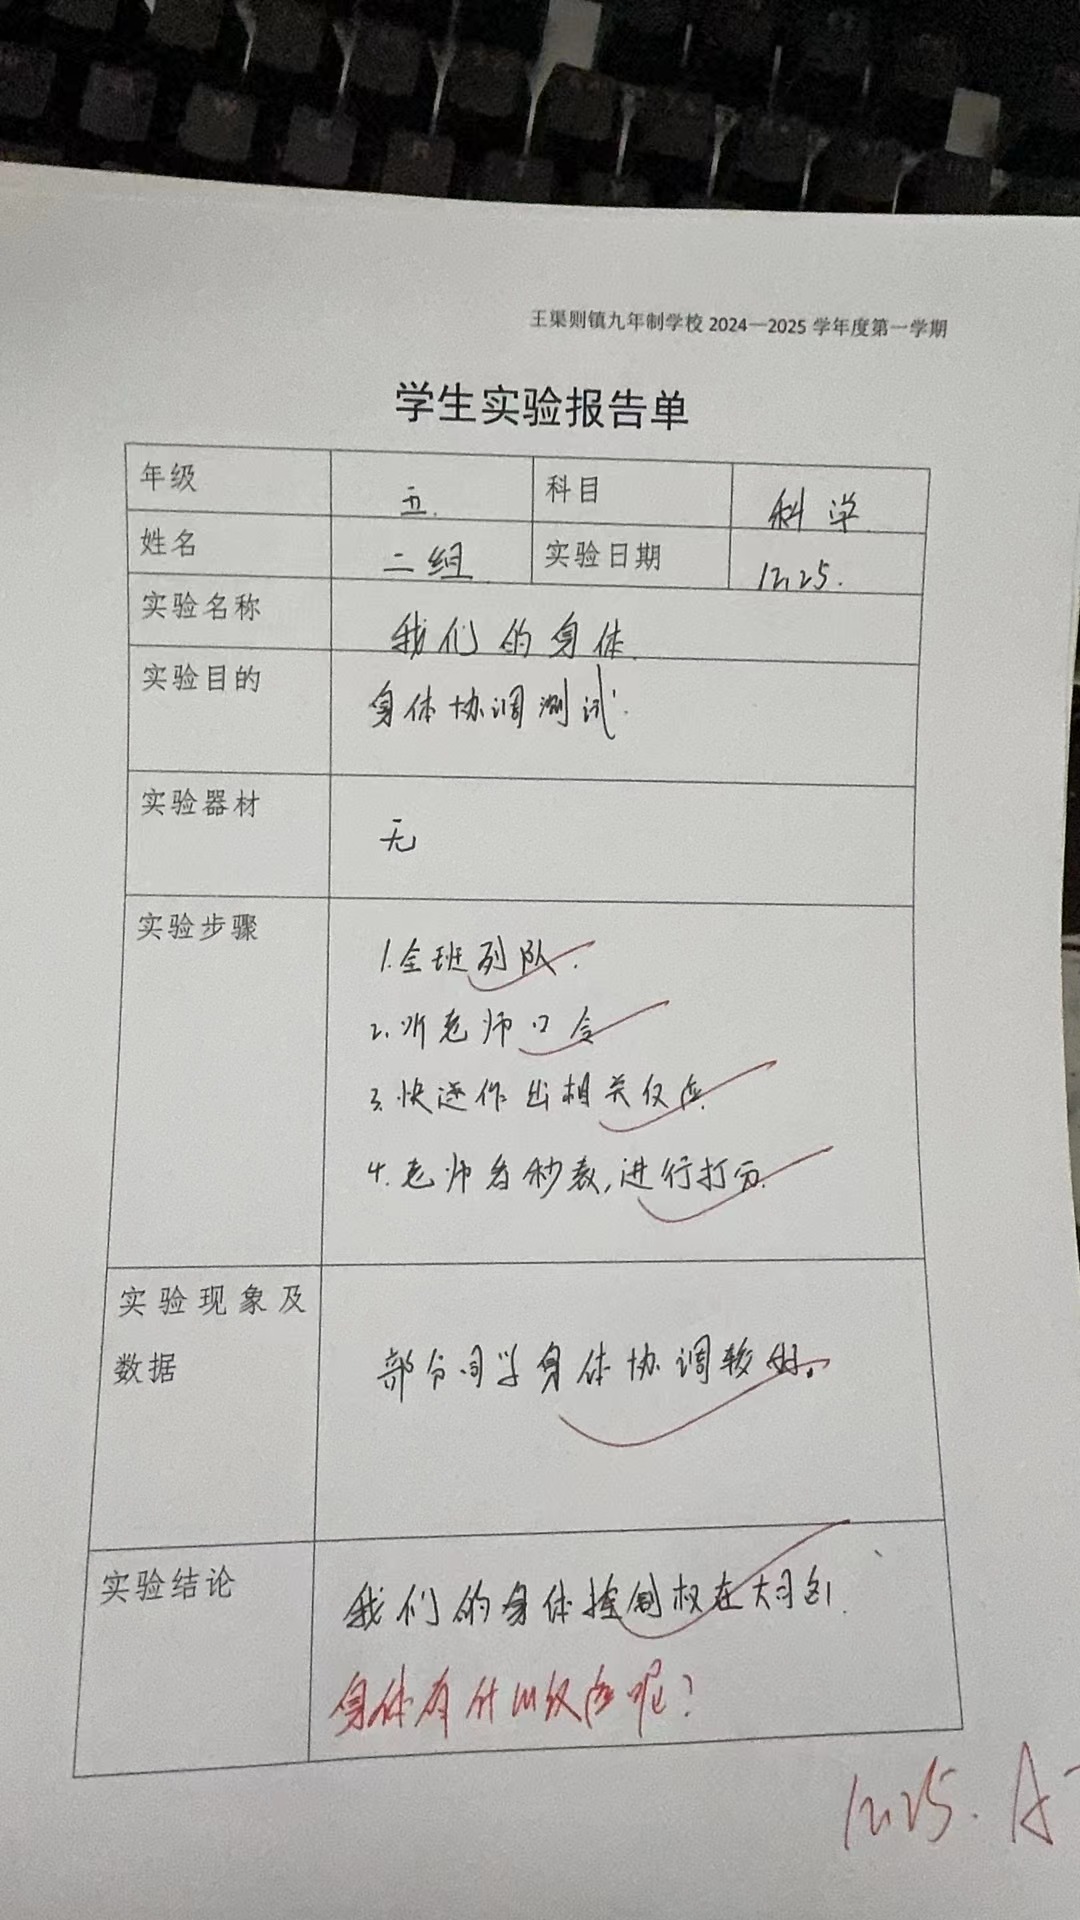 王渠则镇九年制学校 2024—2025 学年度第一学期
学生实验报告单
年级 五. 科目 科学
姓名 二组 实验日期 12.25.
实验名称 我们的身体.
实验目的 身体协调测试.
实验器材 无
实验步骤
1.全班列队.
2.听老师口令
3.快速作出相关反应.
4.老师看秒表,进行打分.
实验现象及
数据 部分同学身体协调较好。
实验结论 我们的身体控制权在大脑.
身体有什么反应呢?
12.25. A